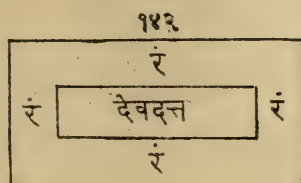 १४२
रं
सं देवदत्त सं
रं